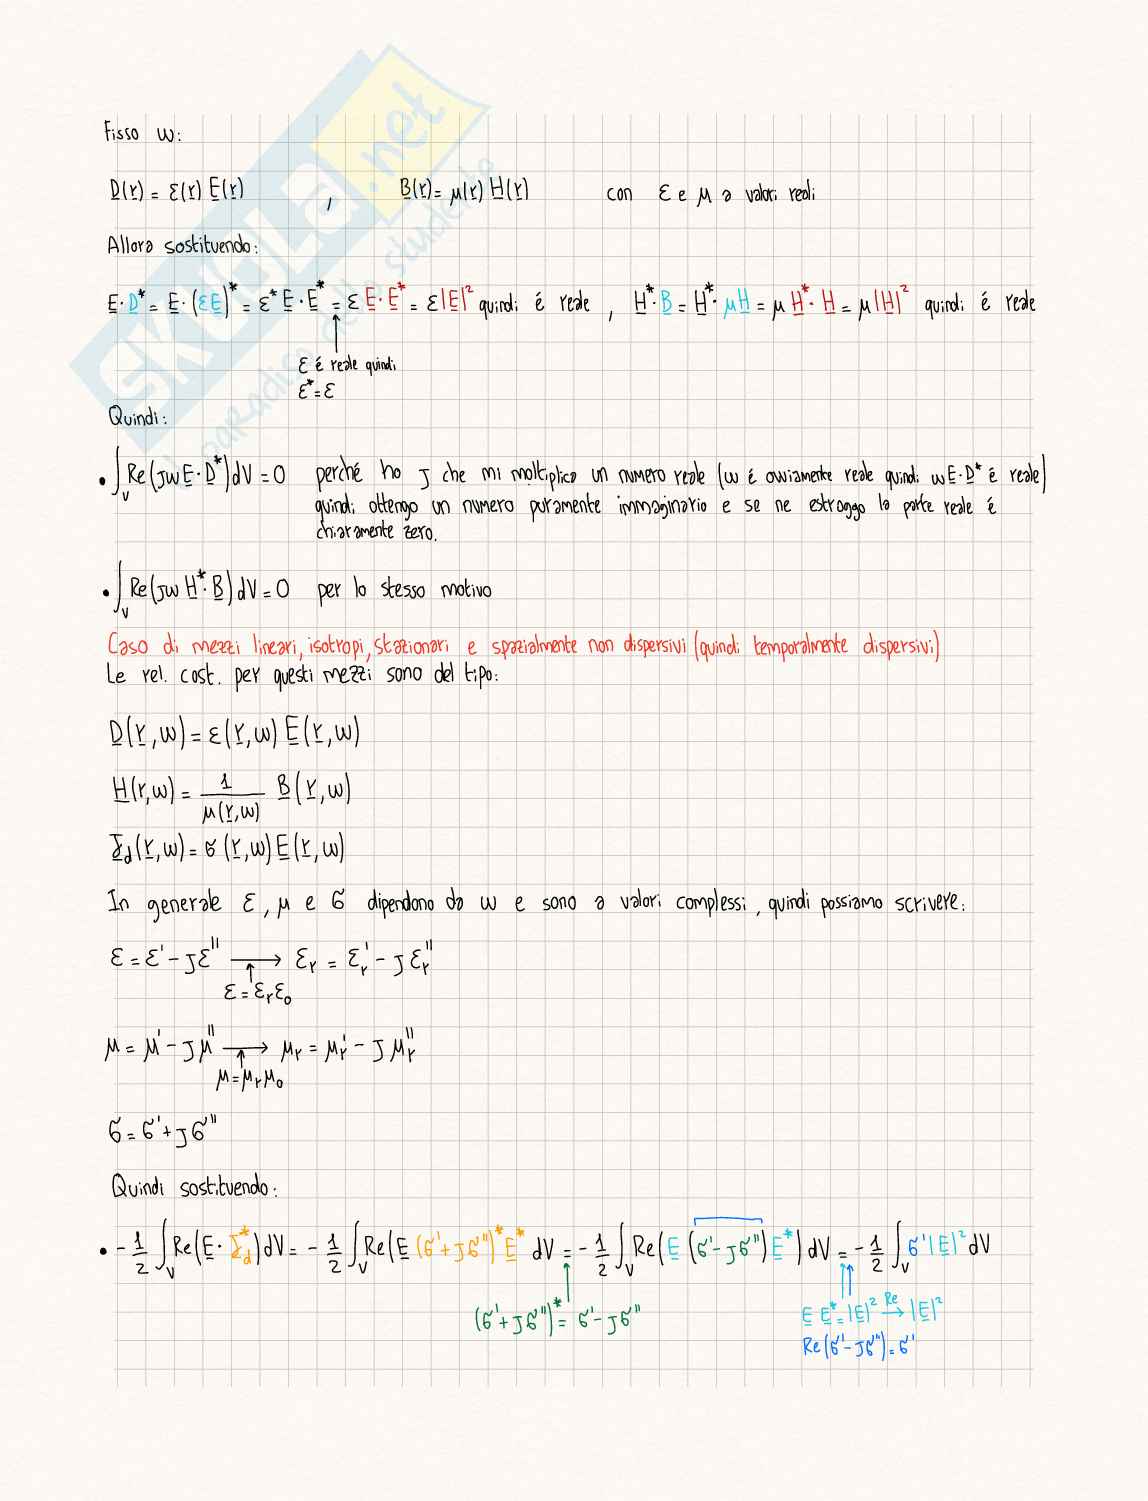 SKUOLA.net
il paradiso dello studente
Fisso ω:
D(r) = ε(r) E(r) , B(r) = μ(r) H(r) con ε e μ a valori reali
Allora sostituendo:
E·D* = E·(εE)* = ε* E·E* = ε E·E* = ε|E|² quindi é reale , H*·B = H*·μH = μ H*·H = μ|H|² quindi é reale
ε é reale quindi
ε* = ε
Quindi:
• ∫_V Re(jωE·D*)dV = 0 perché ho j che mi moltiplica un numero reale (ω é ovviamente reale quindi ωE·D* é reale)
quindi ottengo un numero puramente immaginario e se ne estraggo la parte reale é
chiaramente zero.
• ∫_V Re(jω H*·B)dV = 0 per lo stesso motivo
Caso di mezzi lineari, isotropi, stazionari e spazialmente non dispersivi (quindi temporalmente dispersivi)
Le rel. cost. per questi mezzi sono del tipo:
D(r,ω) = ε(r,ω) E(r,ω)
H(r,ω) = 1/μ(r,ω) B(r,ω)
J_d(r,ω) = σ(r,ω) E(r,ω)
In generale ε, μ e σ dipendono da ω e sono a valori complessi, quindi possiamo scrivere:
ε = ε' - jε'' → ε_r = ε_r' - jε_r''
ε = ε_r ε_0
μ = μ' - jμ'' → μ_r = μ_r' - jμ_r''
μ = μ_r μ_0
σ = σ' + jσ''
Quindi sostituendo:
• -1/2 ∫_V Re(E·J_d*)dV = -1/2 ∫_V Re(E (σ'+jσ'')* E* dV = -1/2 ∫_V Re(E (σ'-jσ'') E*) dV = -1/2 ∫_V σ'|E|² dV
(σ'+jσ'')* = σ'-jσ'' E E* = |E|² Re→ |E|²
Re(σ'-jσ'') = σ'